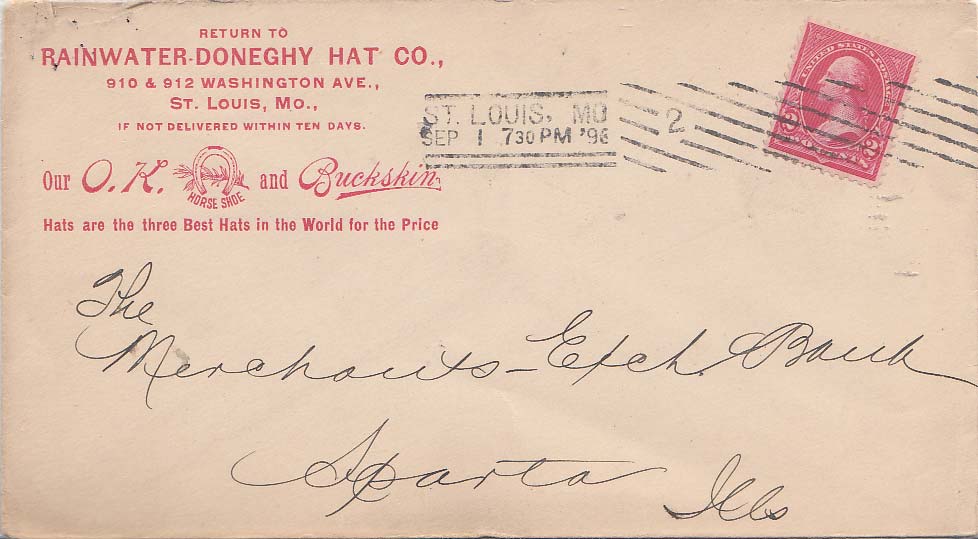 RETURN TO
RAINWATER-DONEGHY HAT CO.,
910 & 912 WASHINGTON AVE.,
ST. LOUIS, MO.,
IF NOT DELIVERED WITHIN TEN DAYS.
Our O.K. HORSE SHOE and Buckskin
Hats are the three Best Hats in the World for the Price
ST. LOUIS, MO
SEP 1 730 PM '96
2
UNITED STATES POSTAGE
2 TWO CENTS 2
The
Merchants-Exch. Bank
Sparta
Ills